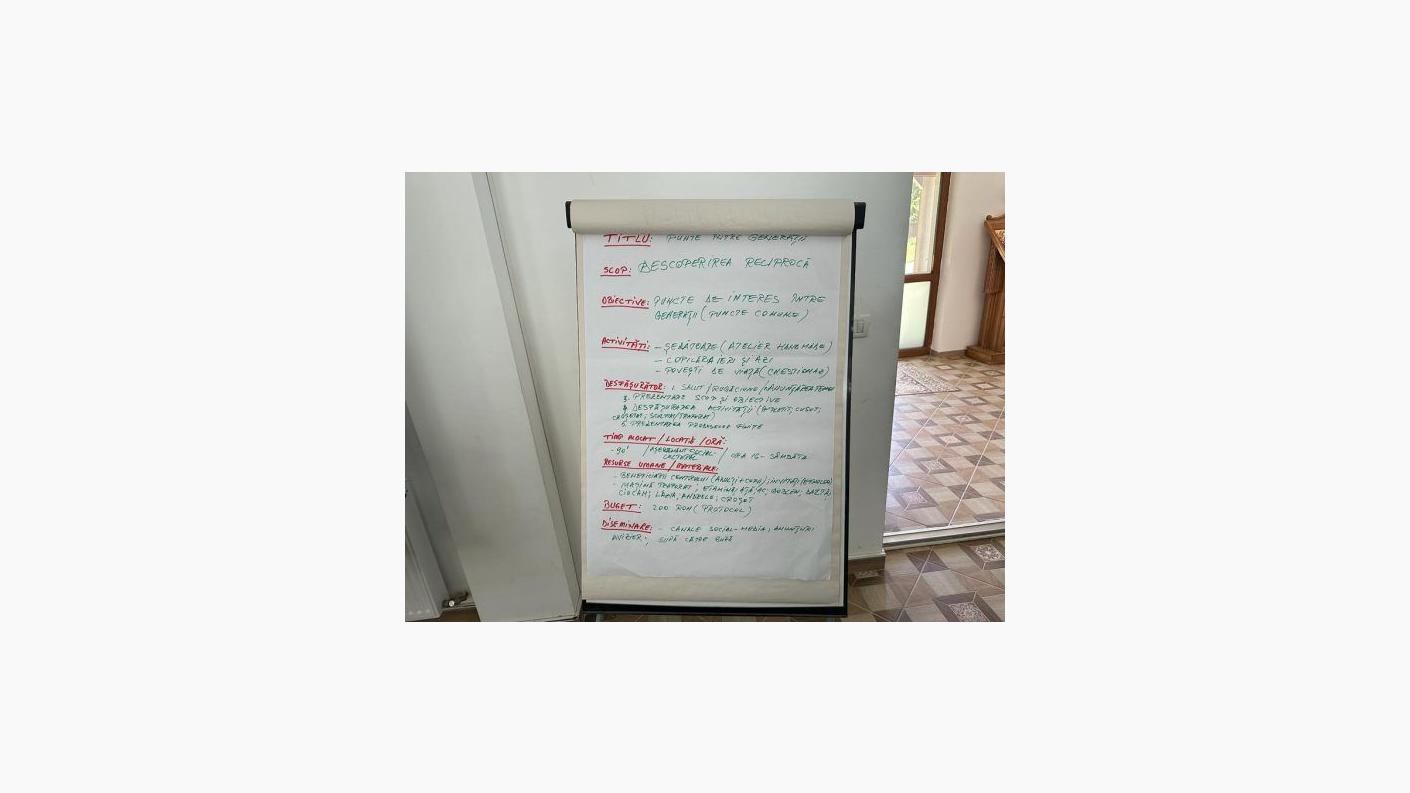 TITLU: PUNTE ÎNTRE GENERAȚII
SCOP: DESCOPERIREA RECIPROCĂ
OBIECTIVE: PUNCTE DE INTERES ÎNTRE
GENERAȚII (PUNCTE COMUNE)
ACTIVITĂȚI: - ȘEZĂTOARE (ATELIER HANDMADE)
- COPILĂRIA IERI ȘI AZI
- POVEȘTI DE VIAȚĂ (CHESTIONAR)
DESFĂȘURĂTOR: 1. SALUT / RUGĂCIUNE / ANUNȚAREA TEMEI
3. PREZENTARE SCOP ȘI OBIECTIVE
4. DESFĂȘURAREA ACTIVITĂȚII (ÎMPLETIT; CUSUT;
CROȘETAT;
5. PREZENTAREA PRODUSELOR FINITE
TIMP ALOCAT / LOCAȚIE / ORĂ:
- 90' / AȘEZĂMÂNT SOCIAL-
CULTURAL / ORA 16 - SÂMBĂTA
RESURSE UMANE / MATERIALE:
- BENEFICIARII CENTRULUI (ADULȚI + COPII); INVITAȚI
- MAȘINĂ ; ETAMINĂ; AȚĂ; AC; GOBLEN;
CIOCAN; LÂNĂ; ANDRELE; CROȘET
BUGET: 200 RON (PROTOCOL)
DISEMINARE: - CANALE SOCIAL-MEDIA; ANUNȚURI
AVIZIER;